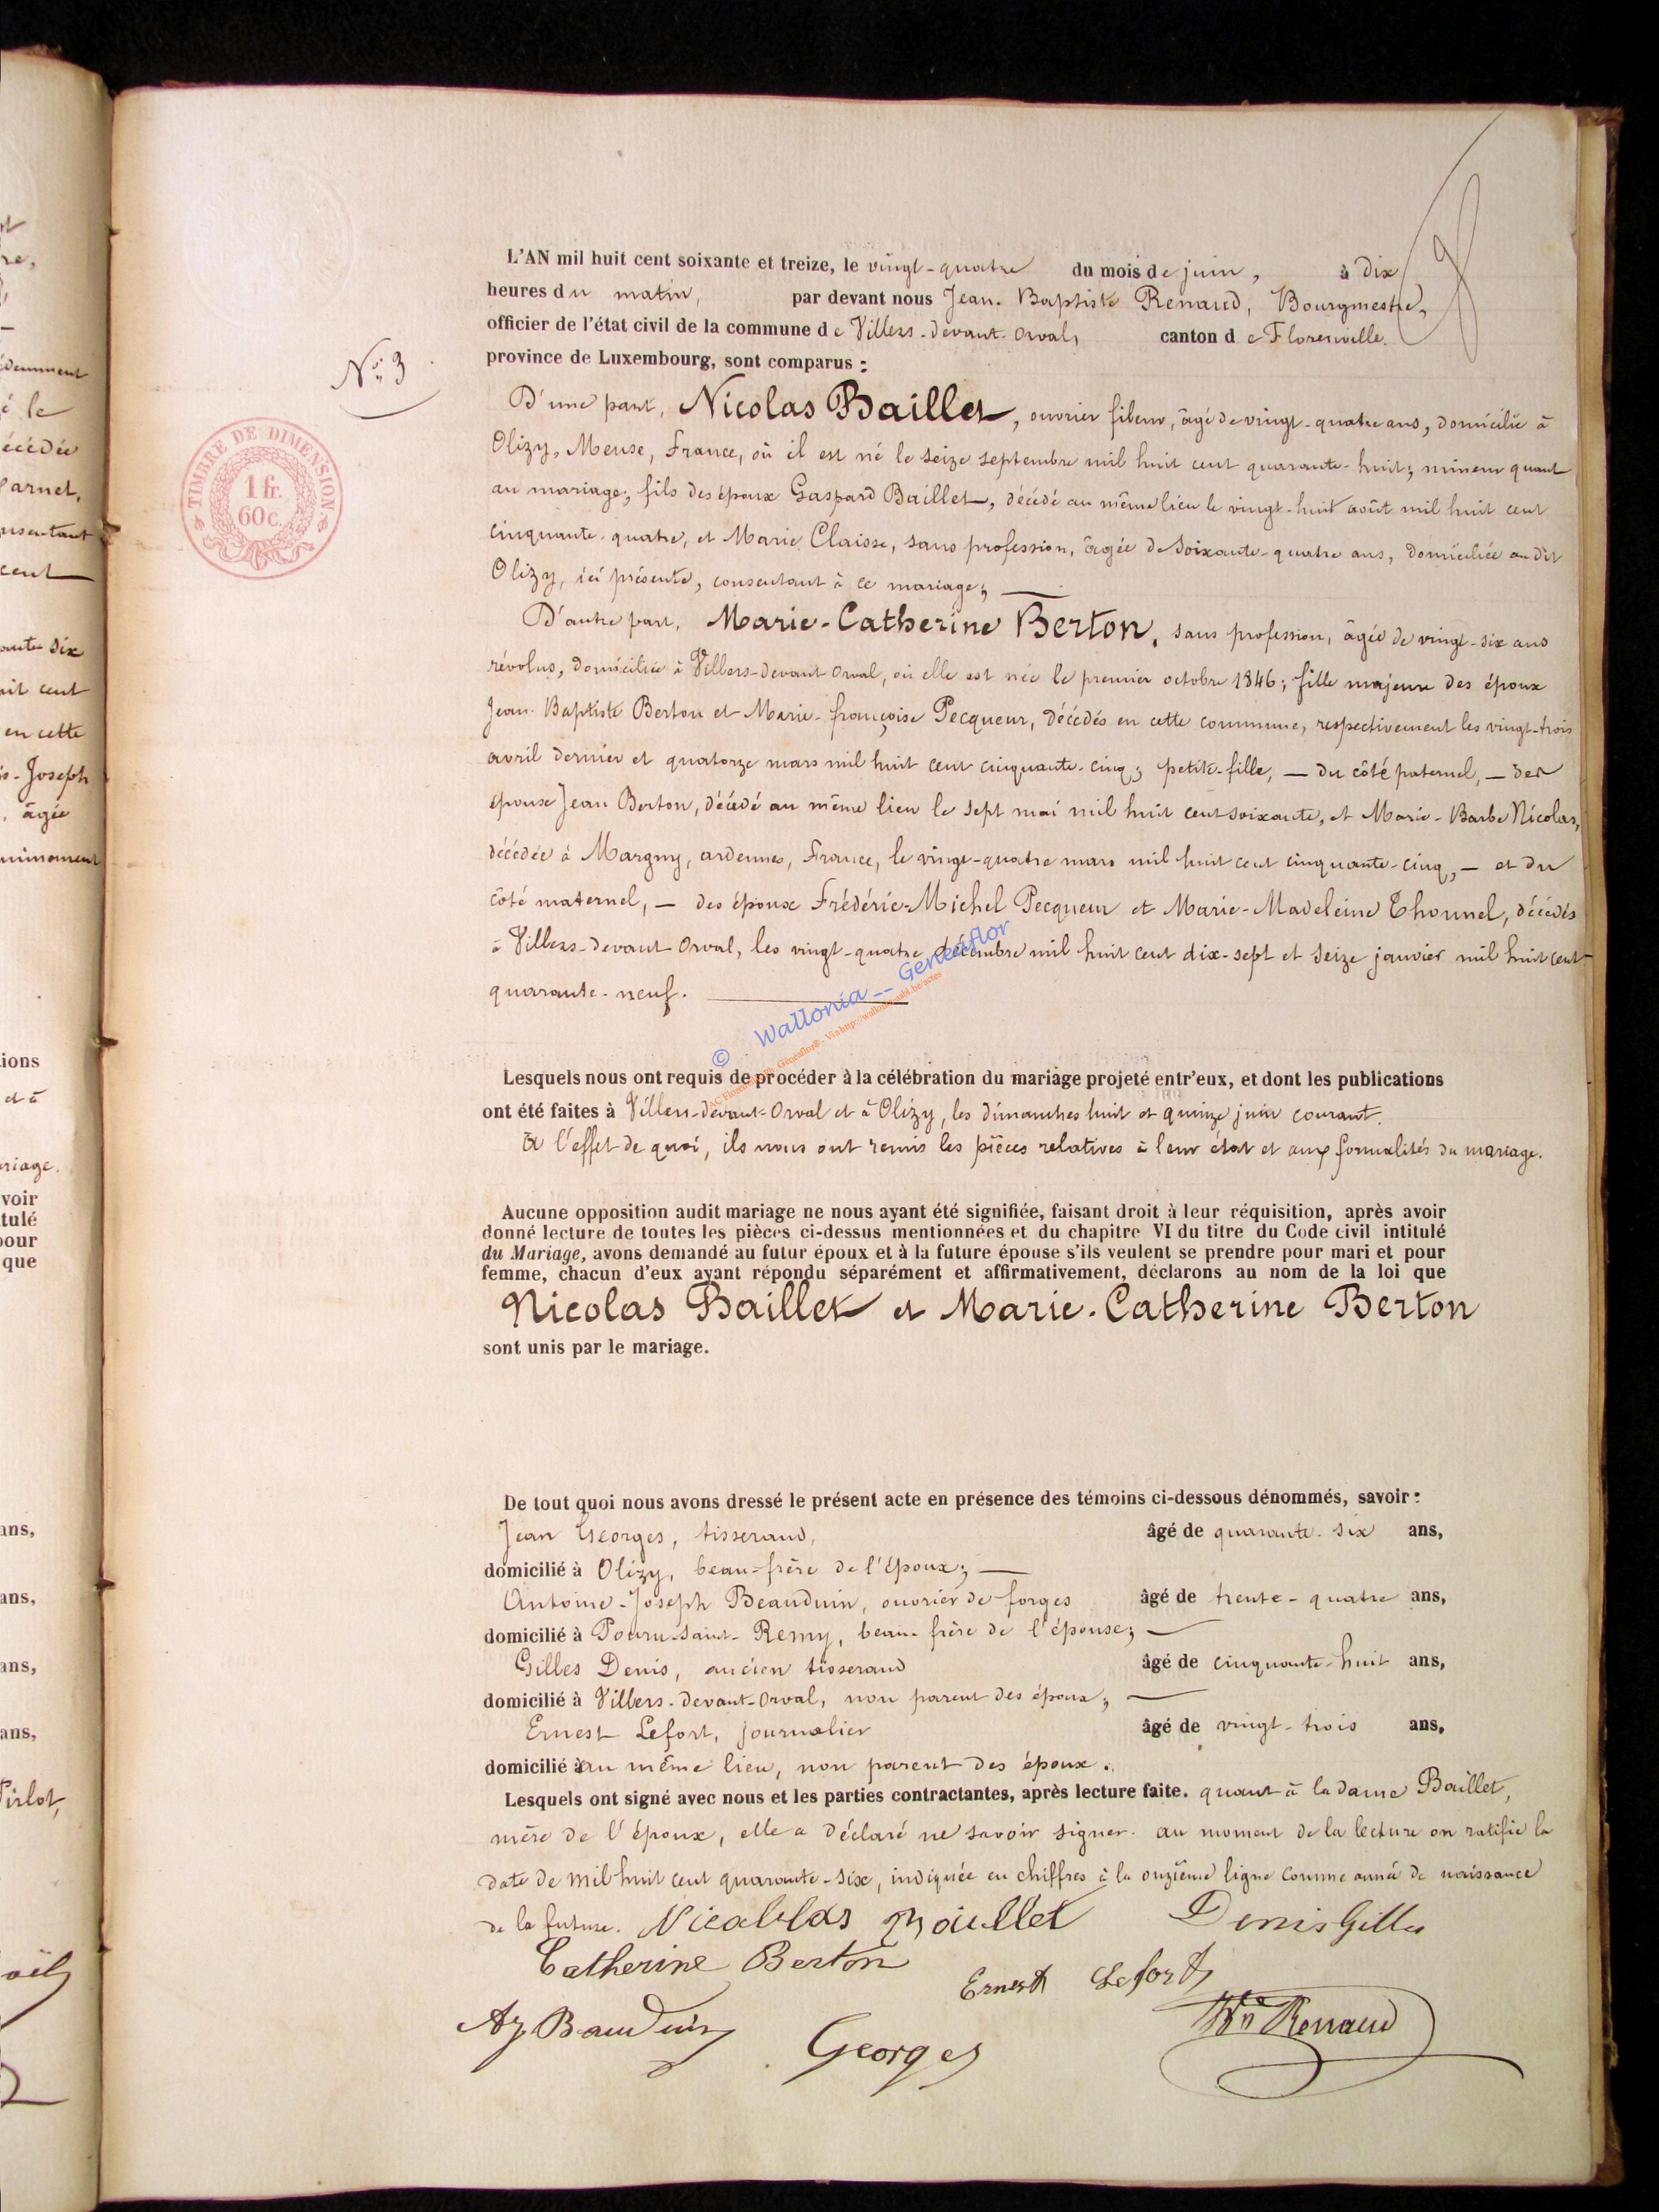 L'AN mil huit cent soixante et treize, le vingt-quatre du mois de juin, à dix
heures du matin, par devant nous Jean-Baptiste Renaud, Bourgmestre,
officier de l'état civil de la commune de Villers-devant-Orval, canton de Florenville.
province de Luxembourg, sont comparus :
N° 3
TIMBRE DE DIMENSION
1 fr.
60 c.
D'une part, Nicolas Baillet, ouvrier fileur, âgé de vingt-quatre ans, domicilié à
Olizy, Meuse, France, où il est né le seize septembre mil huit cent quarante-huit; mineur quant
au mariage; fils des époux Gaspard Baillet, décédé au même lieu le vingt-huit août mil huit cent
cinquante-quatre, et Marie Claisse, sans profession, âgée de soixante-quatre ans, domiciliée au dit
Olizy, ici présente, consentant à ce mariage;
D'autre part, Marie-Catherine Berton, sans profession, âgée de vingt-six ans
révolus, domiciliée à Villers-devant-Orval, où elle est née le premier octobre 1846; fille majeure des époux
Jean-Baptiste Berton et Marie-françoise Pecqueur, décédés en cette commune, respectivement les vingt-trois
avril dernier et quatorze mars mil huit cent cinquante-cinq; petite-fille, — du côté paternel, — des
époux Jean Berton, décédé au même lieu le sept mai mil huit cent soixante, et Marie-Barbe Nicolas,
décédée à Margny, ardennes, France, le vingt-quatre mars mil huit cent cinquante-cinq, — et du
côté maternel, — des époux Frédéric-Michel Pecqueur et Marie-Madeleine Thonnel, décédés
à Villers-devant-Orval, les vingt-quatre décembre mil huit cent dix-sept et seize janvier mil huit cent
quarante-neuf.
© Wallonia -- Geneaflor
Lesquels nous ont requis de procéder à la célébration du mariage projeté entr'eux, et dont les publications
ont été faites à Villers-devant-Orval et à Olizy, les dimanches huit et quinze juin courant.
A l'effet de quoi, ils nous ont remis les pièces relatives à leur état et aux formalités du mariage.
Aucune opposition audit mariage ne nous ayant été signifiée, faisant droit à leur réquisition, après avoir
donné lecture de toutes les pièces ci-dessus mentionnées et du chapitre VI du titre du Code civil intitulé
du Mariage, avons demandé au futur époux et à la future épouse s'ils veulent se prendre pour mari et pour
femme, chacun d'eux ayant répondu séparément et affirmativement, déclarons au nom de la loi que
Nicolas Baillet et Marie-Catherine Berton
sont unis par le mariage.
De tout quoi nous avons dressé le présent acte en présence des témoins ci-dessous dénommés, savoir :
Jean Georges, tisserand, âgé de quarante-six ans,
domicilié à Olizy, beau-frère de l'époux;
Antoine-Joseph Beauduin, ouvrier de forges âgé de trente-quatre ans,
domicilié à Pouru-Saint-Remy, beau-frère de l'épouse;
Gilles Denis, ancien tisserand âgé de cinquante-huit ans,
domicilié à Villers-devant-Orval, non parent des époux;
Ernest Lefort, journalier âgé de vingt-trois ans,
domicilié à au même lieu, non parent des époux.
Lesquels ont signé avec nous et les parties contractantes, après lecture faite. quant à la dame Baillet,
mère de l'époux, elle a déclaré ne savoir signer. au moment de la lecture on ratifie la
date de mil huit cent quarante-six, indiquée en chiffres à la onzième ligne comme année de naissance
de la future. Nicolas Baillet Denis Gilles
Catherine Berton
Ernest Lefort
Aj Bauduin Georges Renaud